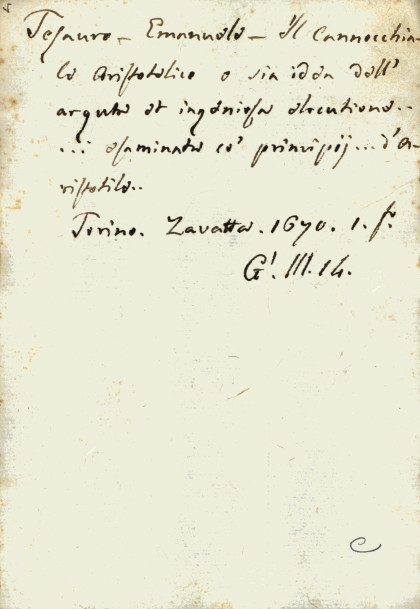 Tesauro - Emanuele - Il Cannocchia-
le Aristotelico o sia idea dell'
arguta et ingeniosa elocutione..
...: esaminata co' principij... d'A-
ristotile..
Torino. Zavatta. 1670. 1. f.º
G'. III. 14.